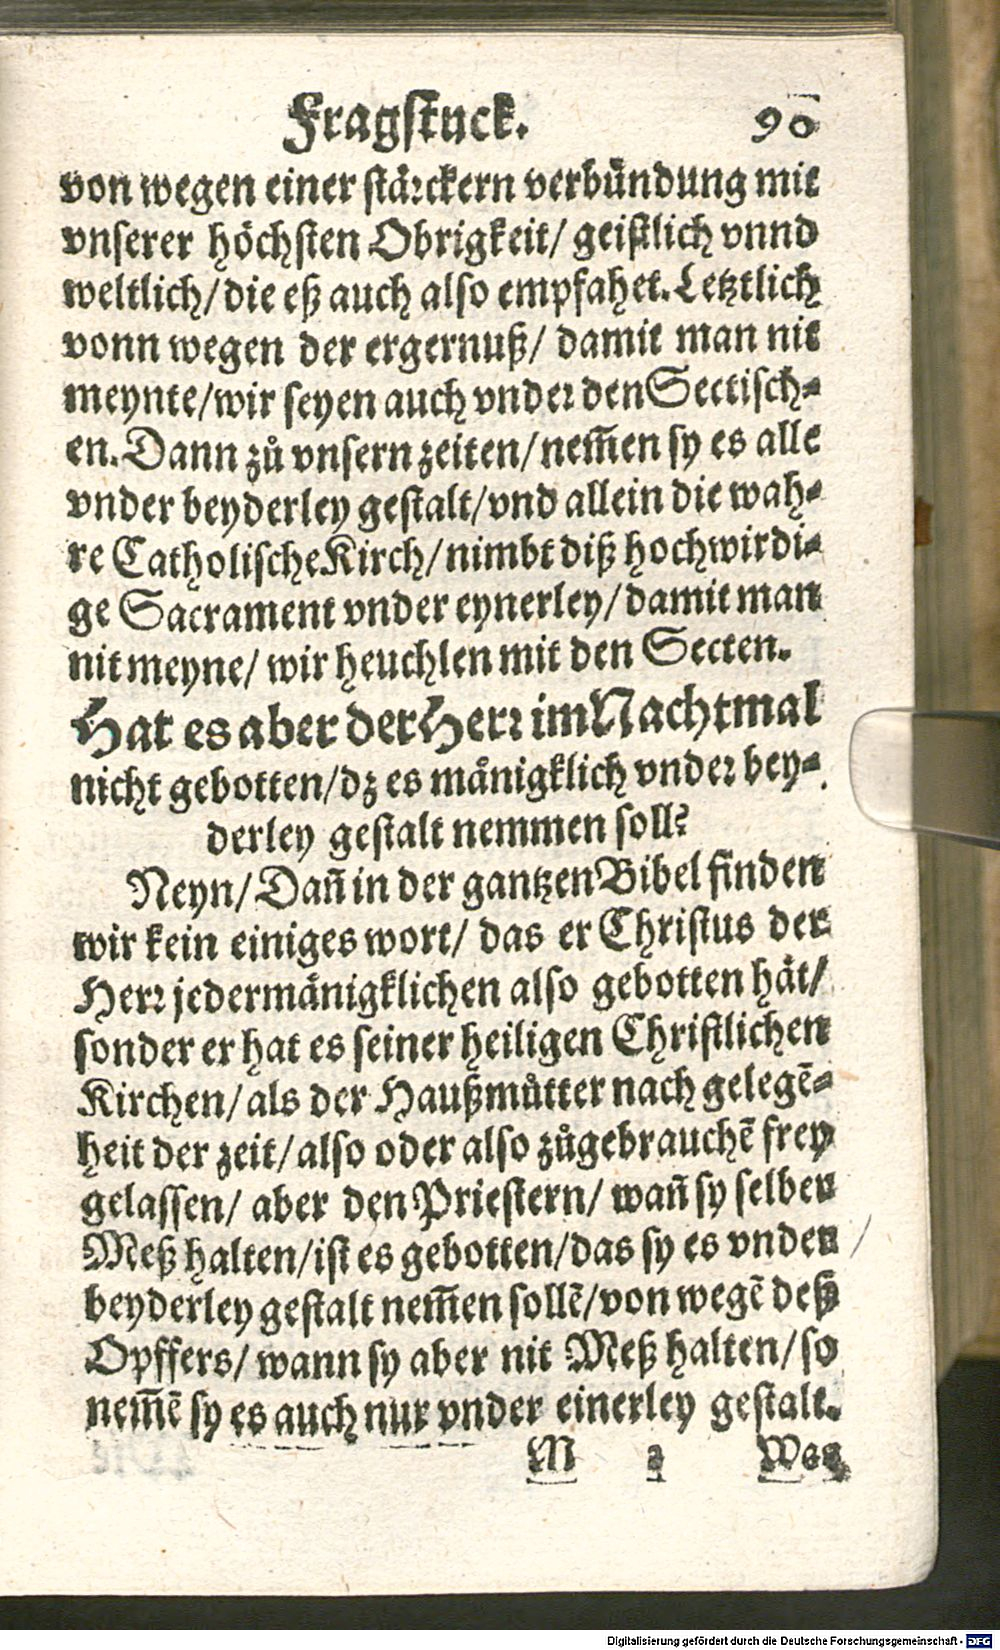 Fragstuck. 90
von wegen einer stärckern verbündung mit
vnserer höchsten Obrigkeit/ geistlich vnnd
weltlich/ die eß auch also empfahet. Letztlich
vonn wegen der ergernuß/ damit man nit
meynte/ wir seyen auch vnder den Sectisch-
en. Dann zů vnsern zeiten/ nem̃en sy es alle
vnder beyderley gestalt/ vnd allein die wah-
re Catholische Kirch/ nimbt diß hochwirdi-
ge Sacrament vnder eynerley/ damit man
nit meyne/ wir heuchlen mit den Secten.
Hat es aber der Herr im Nachtmal
nicht gebotten/ dz es mänigklich vnder bey-
derley gestalt nemmen soll?
Neyn/ Dañ in der gantzen Bibel finden
wir kein einiges wort/ das er Christus der
Herr jedermänigklichen also gebotten hät/
sonder er hat es seiner heiligen Christlichen
Kirchen/ als der Haußmůtter nach gelegẽ-
heit der zeit/ also oder also zůgebrauchẽ frey
gelassen/ aber den Priestern/ wañ sy selber
Meß halten/ ist es gebotten/ das sy es vnder
beyderley gestalt nem̃en sollẽ/ von wegẽ deß
Opffers/ wann sy aber nit Meß halten/ so
nem̃ẽ sy es auch nur vnder einerley gestalt.
M 2 Was
Digitalisierung gefördert durch die Deutsche Forschungsgemeinschaft - DFG